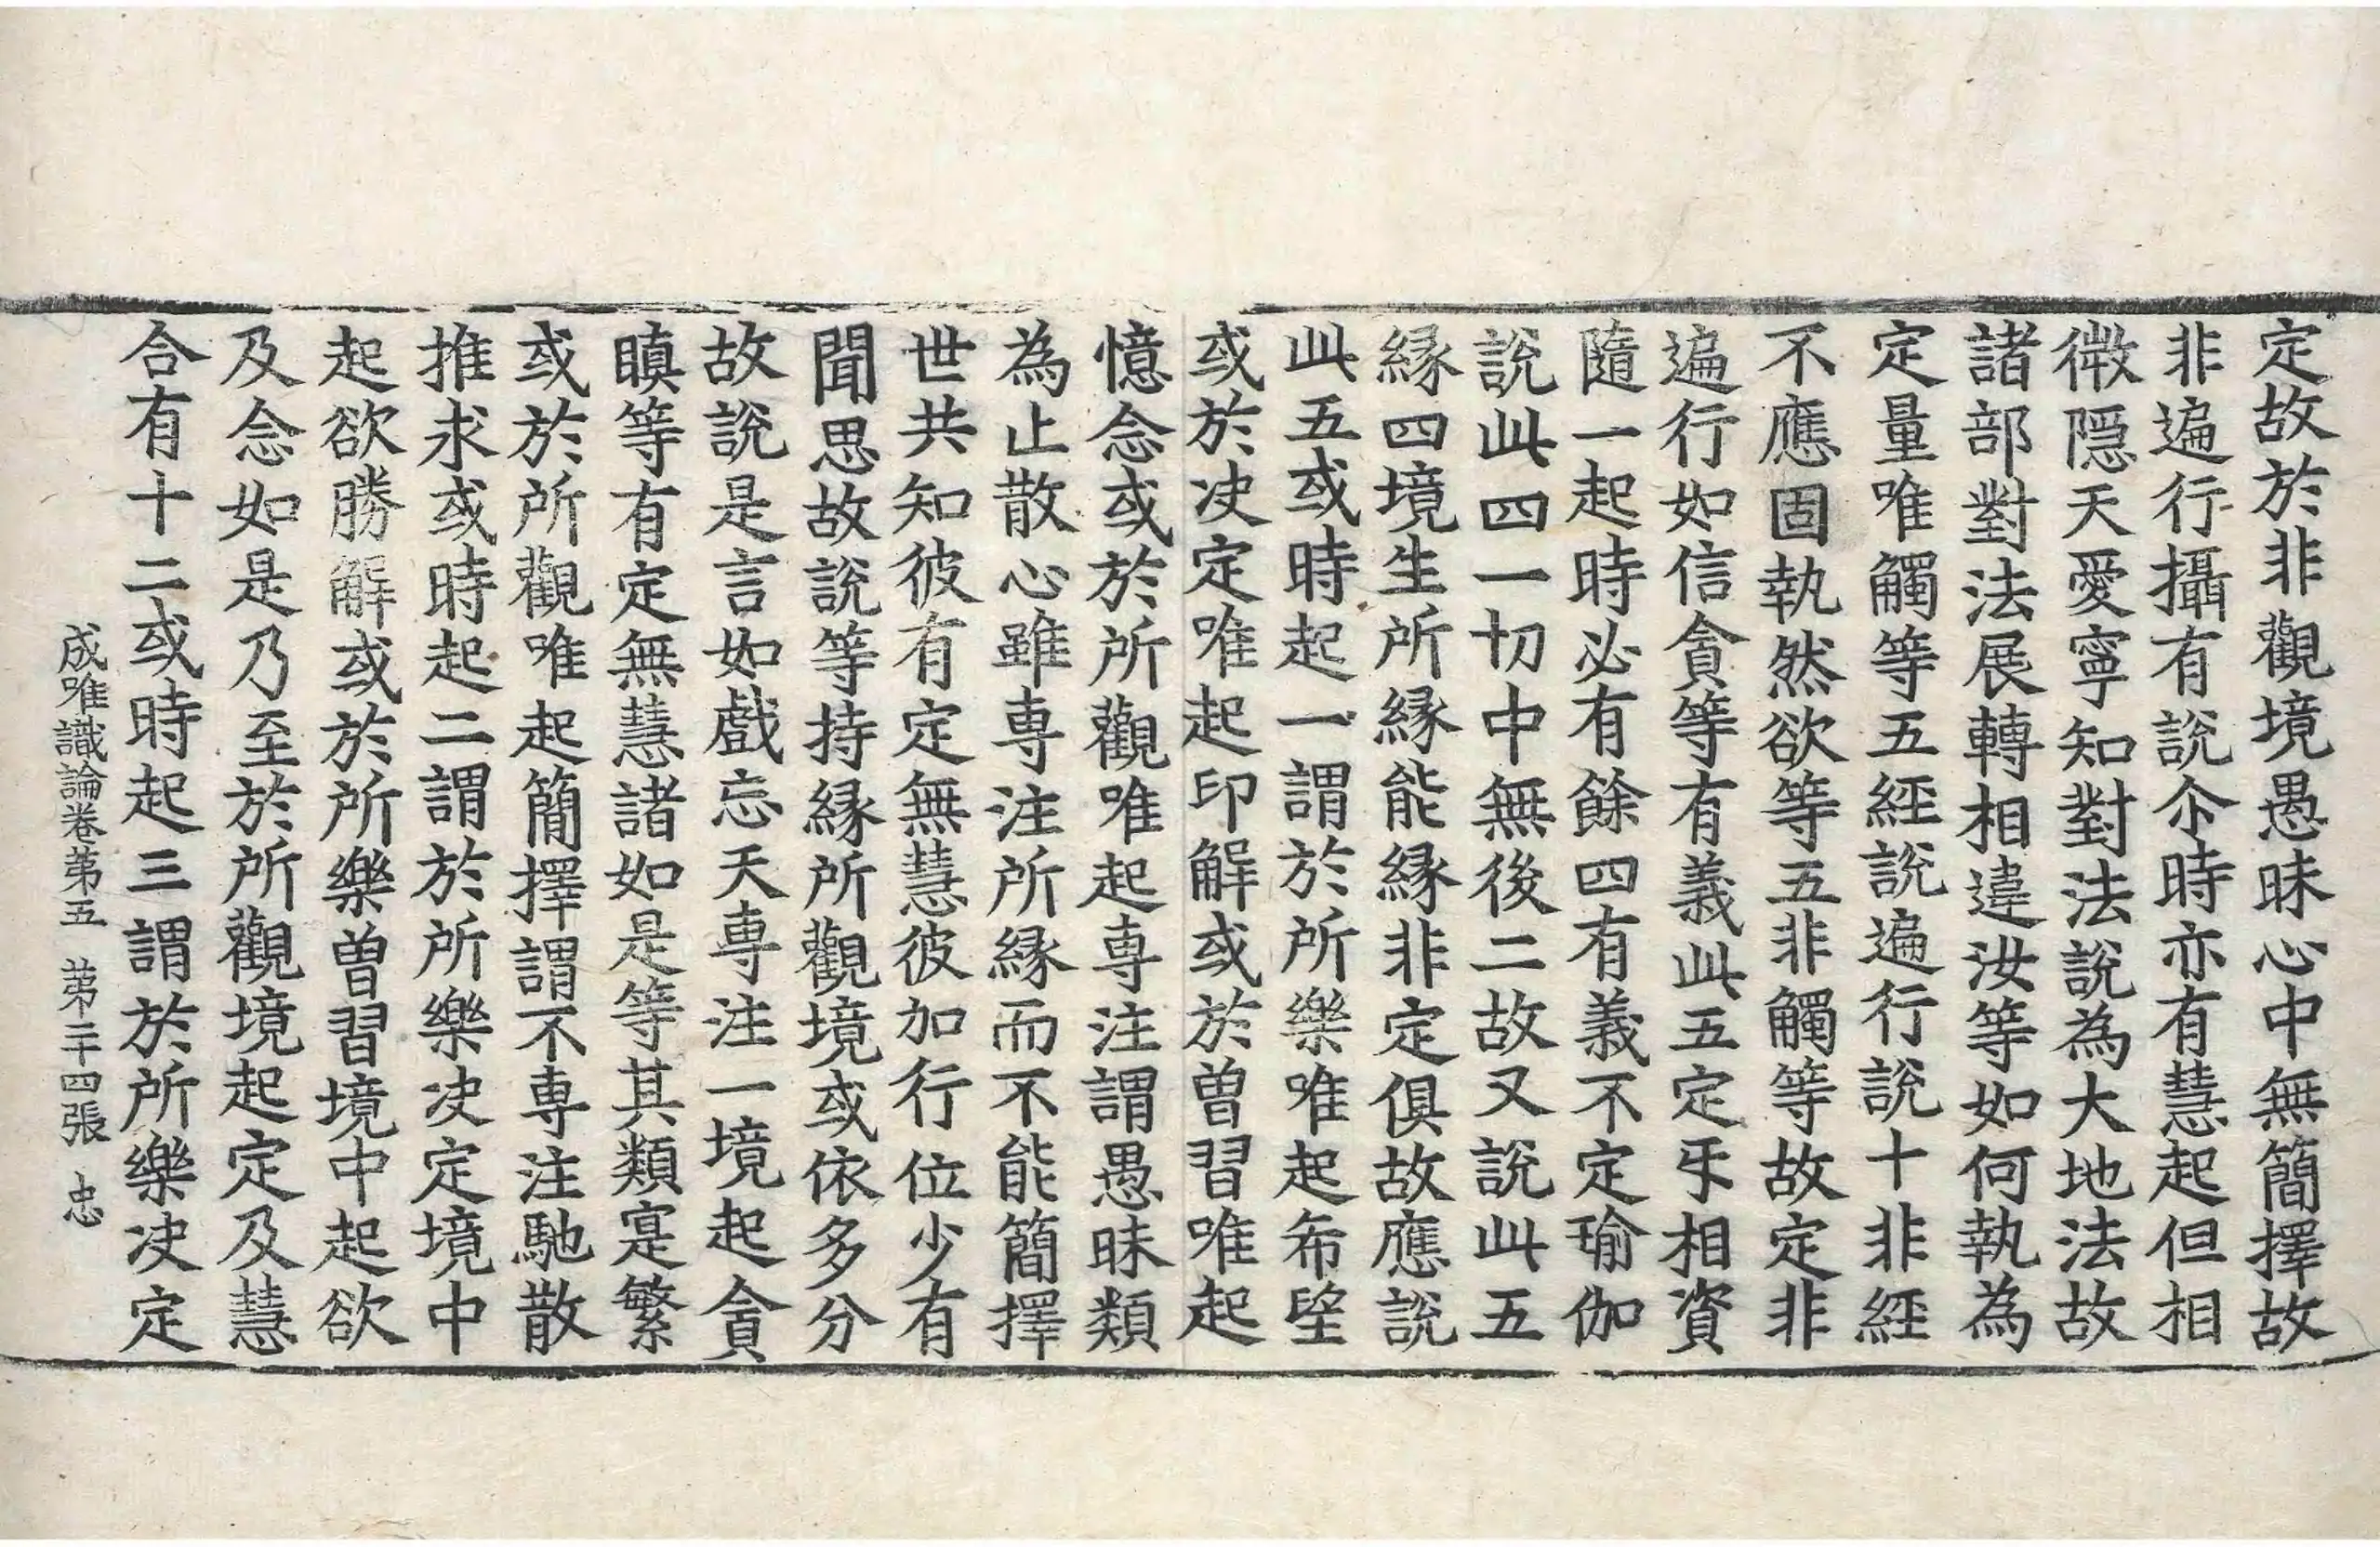 定故於非觀境愚昧心中無簡擇故
非遍行攝有說尒時亦有慧起但相
微隱天愛寧知對法說為大地法故
諸部對法展轉相違汝等如何執為
定量唯觸等五經說遍行說十非經
不應固執然欲等五非觸等故定非
遍行如信貪等有義此五定㸦相資
隨一起時必有餘四有義不定瑜伽
說此四一切中無後二故又說此五
緣四境生所緣能緣非定俱故應說
此五或時起一謂於所樂唯起希望
或於决定唯起印解或於曾習唯起
憶念或於所觀唯起專注謂愚昧類
為止散心雖專注所緣而不能簡擇
世共知彼有定無慧彼加行位少有
聞思故說等持緣所觀境或依多分
故說是言如戲忘天專注一境起貪
瞋等有定無慧諸如是等其類寔繁
或於所觀唯起簡擇謂不專注馳散
推求或時起二謂於所樂决定境中
起欲勝解或於所樂曾習境中起欲
及念如是乃至於所觀境起定及慧
合有十二或時起三謂於所樂决定
成唯識論卷第五 第二十四張 忠